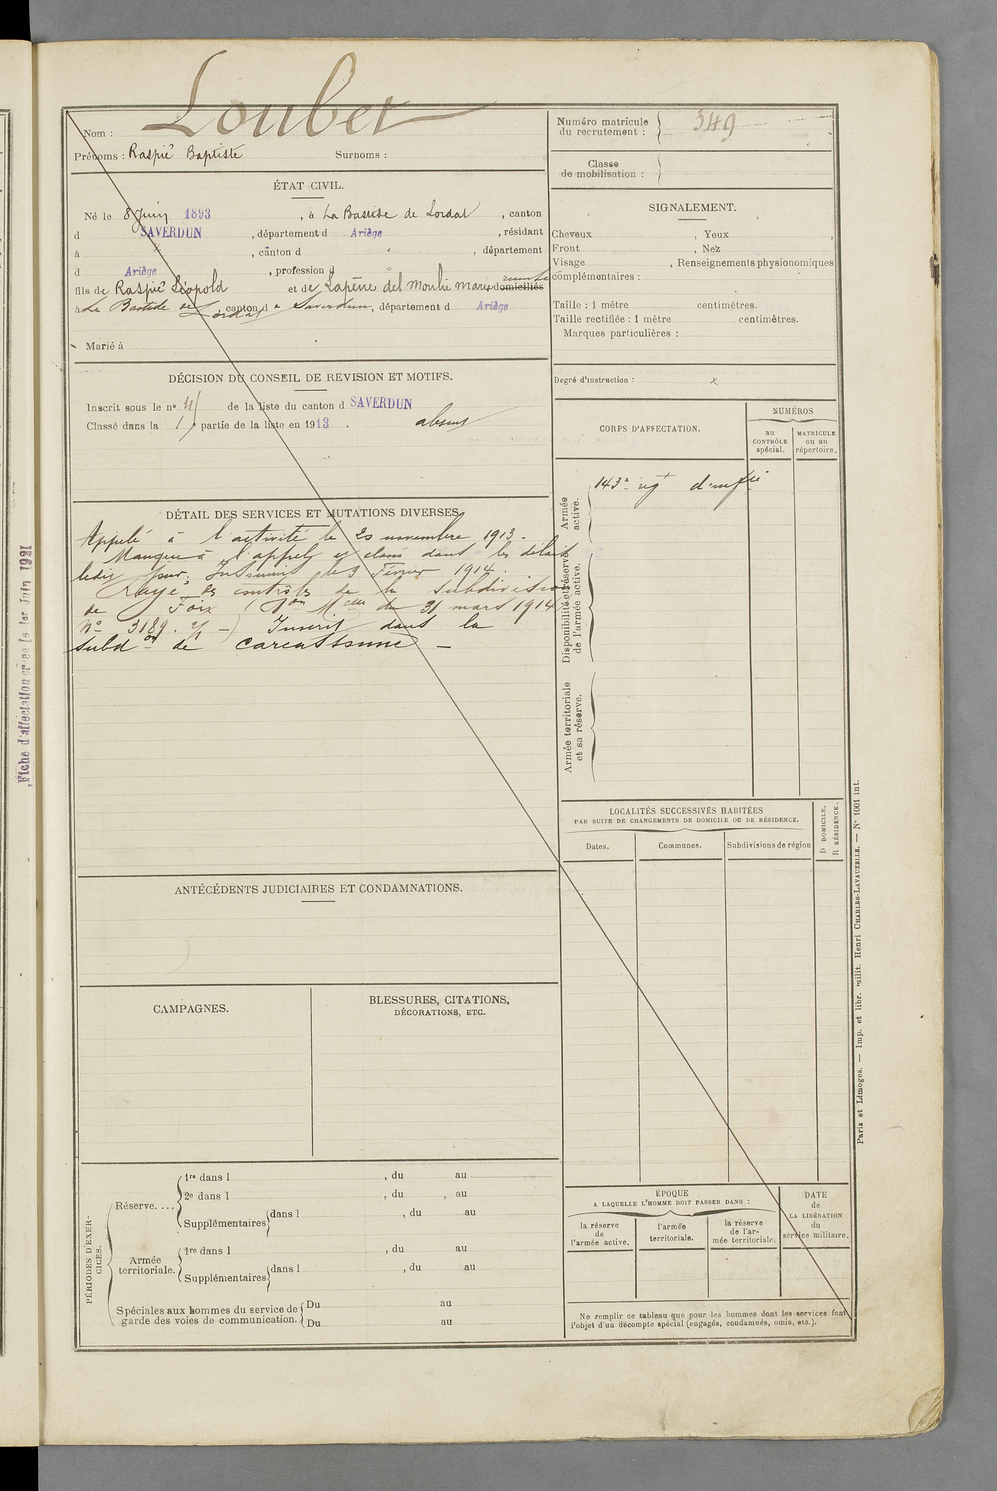 Loubet
Nom :
Prénoms : Raspié Baptiste Surnoms :
ÉTAT CIVIL.
Né le 8 Juin 1893, à La Bastide de Lordat, canton
d SAVERDUN, département d Ariège, résidant
à " , canton d " , département
d Ariège, profession d "
fils de Raspié Léopold et de Lapène del Moulie Marie domiciliés
à La Bastide de Lordat, canton d e Saverdun, département d Ariège
Marié à
DÉCISION DU CONSEIL DE REVISION ET MOTIFS.
Inscrit sous le nº 4 de la liste du canton d SAVERDUN
Classé dans la 1 partie de la liste en 1913. absent
DÉTAIL DES SERVICES ET MUTATIONS DIVERSES.
Appelé à l'activité le 25 novembre 1913.
Manque à l'appel et dans les délais
Insoumis le 3 Février 1914.
Rayé des contrôles de la subdivision
de Foix ( du 31 mars 1914
Nº 3189. ) Inscrit dans la
subd on de Carcassonne —
ANTÉCÉDENTS JUDICIAIRES ET CONDAMNATIONS.
CAMPAGNES.
BLESSURES, CITATIONS,
DÉCORATIONS, ETC.
PÉRIODES D'EXERCICES.
Réserve....
1re dans l , du au
2e dans l , du , au
Supplémentaires dans l , du au
Armée
territoriale.
1re dans l , du au
Supplémentaires dans l , du au
Spéciales aux hommes du service de
garde des voies de communication.
Du au
Du au
Numéro matricule
du recrutement : 349
Classe
de mobilisation :
SIGNALEMENT.
Cheveux , Yeux ,
Front , Nez
Visage , Renseignements physionomiques
complémentaires :
Taille : 1 mètre centimètres.
Taille rectifiée : 1 mètre centimètres.
Marques particulières :
Degré d'instruction : x
CORPS D'AFFECTATION.
NUMÉROS
au
CONTRÔLE
spécial.
MATRICULE
ou au
répertoire.
Armée
active.
143e rgt d'inf ie
Disponibilité et réserve
de l'armée active.
Armée territoriale
et sa réserve.
LOCALITÉS SUCCESSIVES HABITÉES
PAR SUITE DE CHANGEMENTS DE DOMICILE OU DE RÉSIDENCE.
Dates.
Communes.
Subdivisions de région
D DOMICILE.
R RÉSIDENCE.
ÉPOQUE
A LAQUELLE L'HOMME DOIT PASSER DANS :
la réserve
de
l'armée active.
l'armée
territoriale.
la réserve
de l'ar-
mée territoriale.
DATE
de
LA LIBÉRATION
du
service militaire.
Ne remplir ce tableau que pour les hommes dont les services font
l'objet d'un décompte spécial (engagés, condamnés, omis, etc.).
Paris et Limoges. — Imp. et libr. milit. Henri CHARLES-LAVAUZELLE. — Nº 1001 int.
Fiche d'affectation créée le 1er Juin 1921